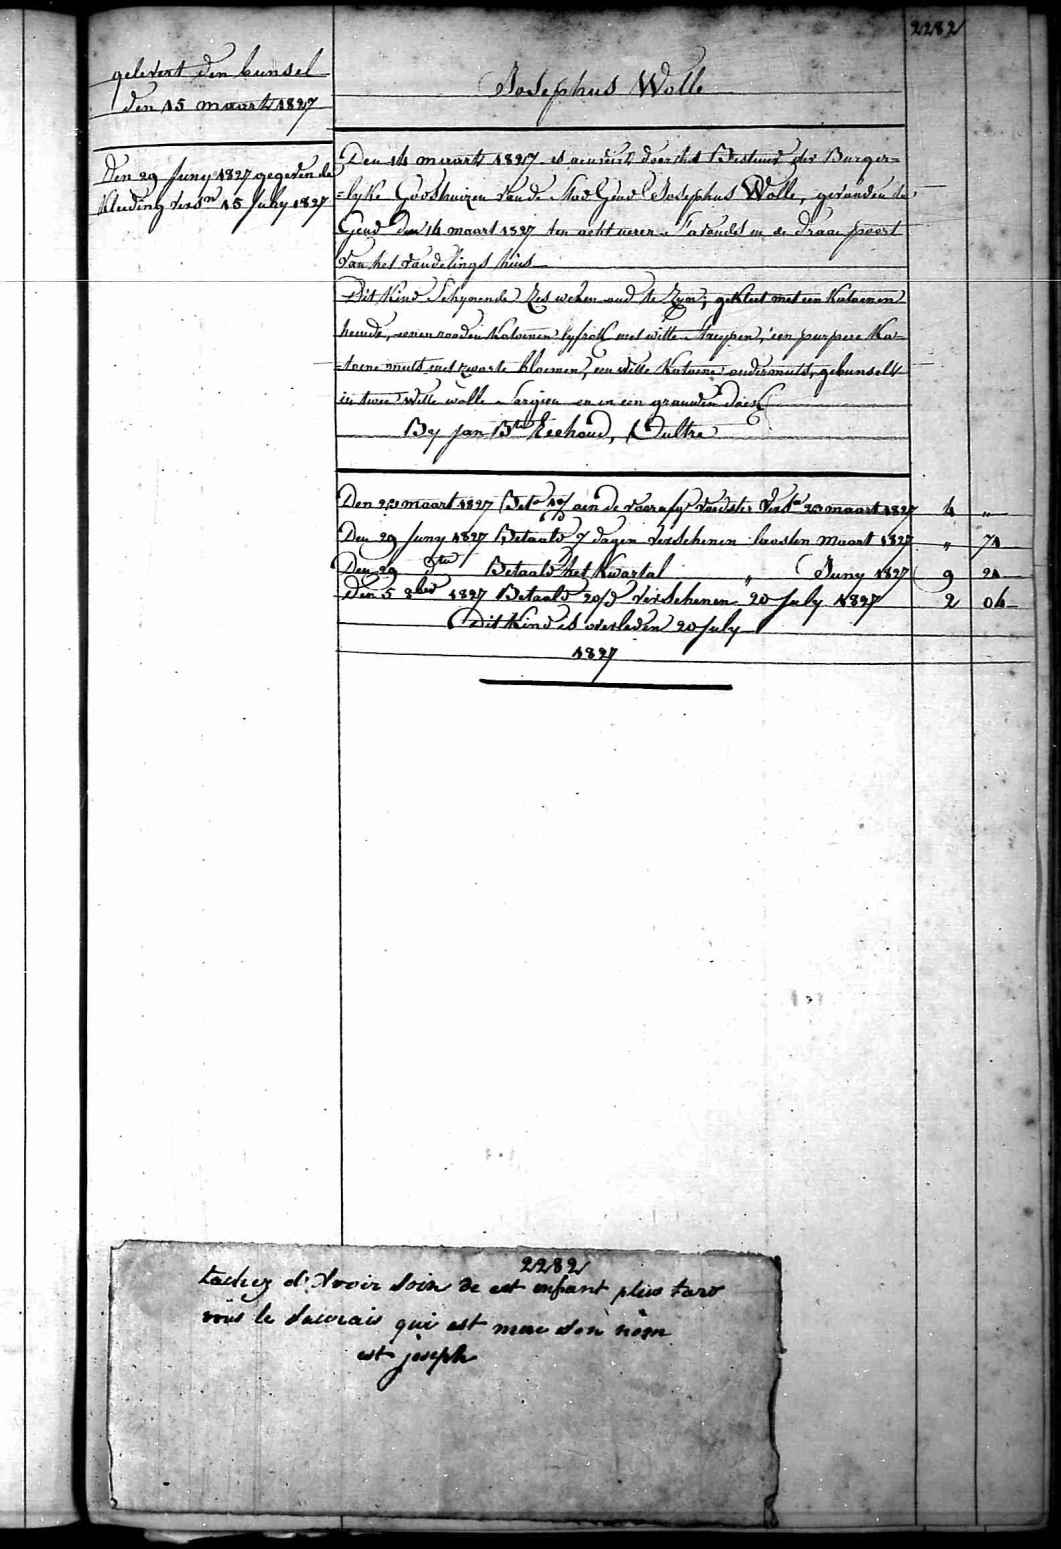 2282
gelevert den bunsel
den 15 maart 1827
Josephus Wolle
Den 29 Juny 1827 gegeven de
kleeding versn 15 July 1827
Den 14 maart 1827 is aenveird door het Bestuur der Burger=
=lyke Godshuizen van de Stad Gend Josephus Wolle, gevonden te
Gend den 14 maart 1827 ten acht ueren s'avonds in de draai poort
van het vondelings huis
Dit Kind Schynende zes weken oud te zyn, gekleet met een katoenen
hemde, eenen rooden katoenen lyfrok met witte streepen, een purpere Ka-
=toene muts met zwarte bloemen, een witte katoene ondermuts, gebunselt
in twee witte wolle sargien en in een grauwen doek
By Jan Bte Eechoud, Vultre
Den 23 maart 1827 Bete aen de voorsz. voedster verst 23 maart 1827 4 „
Den 29 Juny 1827 Betaald 7 dagen verschenen laasten maart 1827 „ 71
Den 29 dto Betaald het kwartal „ Juny 1827 9 21
Den 5 8ber 1827 Betaald 20/d verschenen 20 July 1827 2 04
Dit Kind is overleden 20 July
1827
2282
tachez d'Avoir Soin de cet enfant plus tard
vous le Saurais qui est mai son nom
est joseph